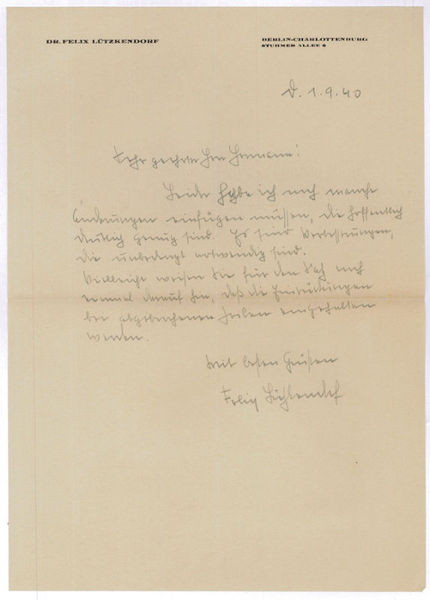 DR. FELIX LÜTZKENDORF
BERLIN-CHARLOTTENBURG
STÜHMER ALLEE
d. 1.9.40
Sehr geehrter Herr
Leider habe ich noch manche
Änderungen einfügen müssen, die hoffentlich
deutlich genug sind. Es sind Verbesserungen,
die unbedingt notwendig sind.
Vielleicht weisen Sie für den Satz noch
einmal darauf hin, daß die Einrückungen
bei abgebrochenen Zeilen eingehalten
werden.
Mit besten Grüßen
Felix Lützkendorf